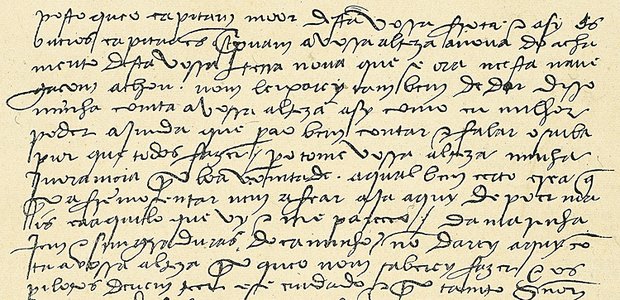 posto queo capitam moor desta vossa frota e asy os
outros capitaães screpuam avossa alteza anoua do acha
mento desta vossa terra noua que se ora neesta naue
gaçom achou. nom leixarey tambem de dar disso
minha comta avossa alteza asy como eu milhor
poder ajmda que perao bem contar e falar o saiba
pior que todos fazer / pero tome vossa alteza minha
jnoramçia por boa vomtade. aqual bem çerto crea q̃
por afremosentar nem afear aja aquy de poer ma
is caaquilo que vy e me pareçeo / da marinha
jem e simgraduras do caminho nõ darey aquy cõ
ta avossa alteza por queo nom saberey fazer e os
pilotos deuem teer ese cuidado e por tanto Sñor